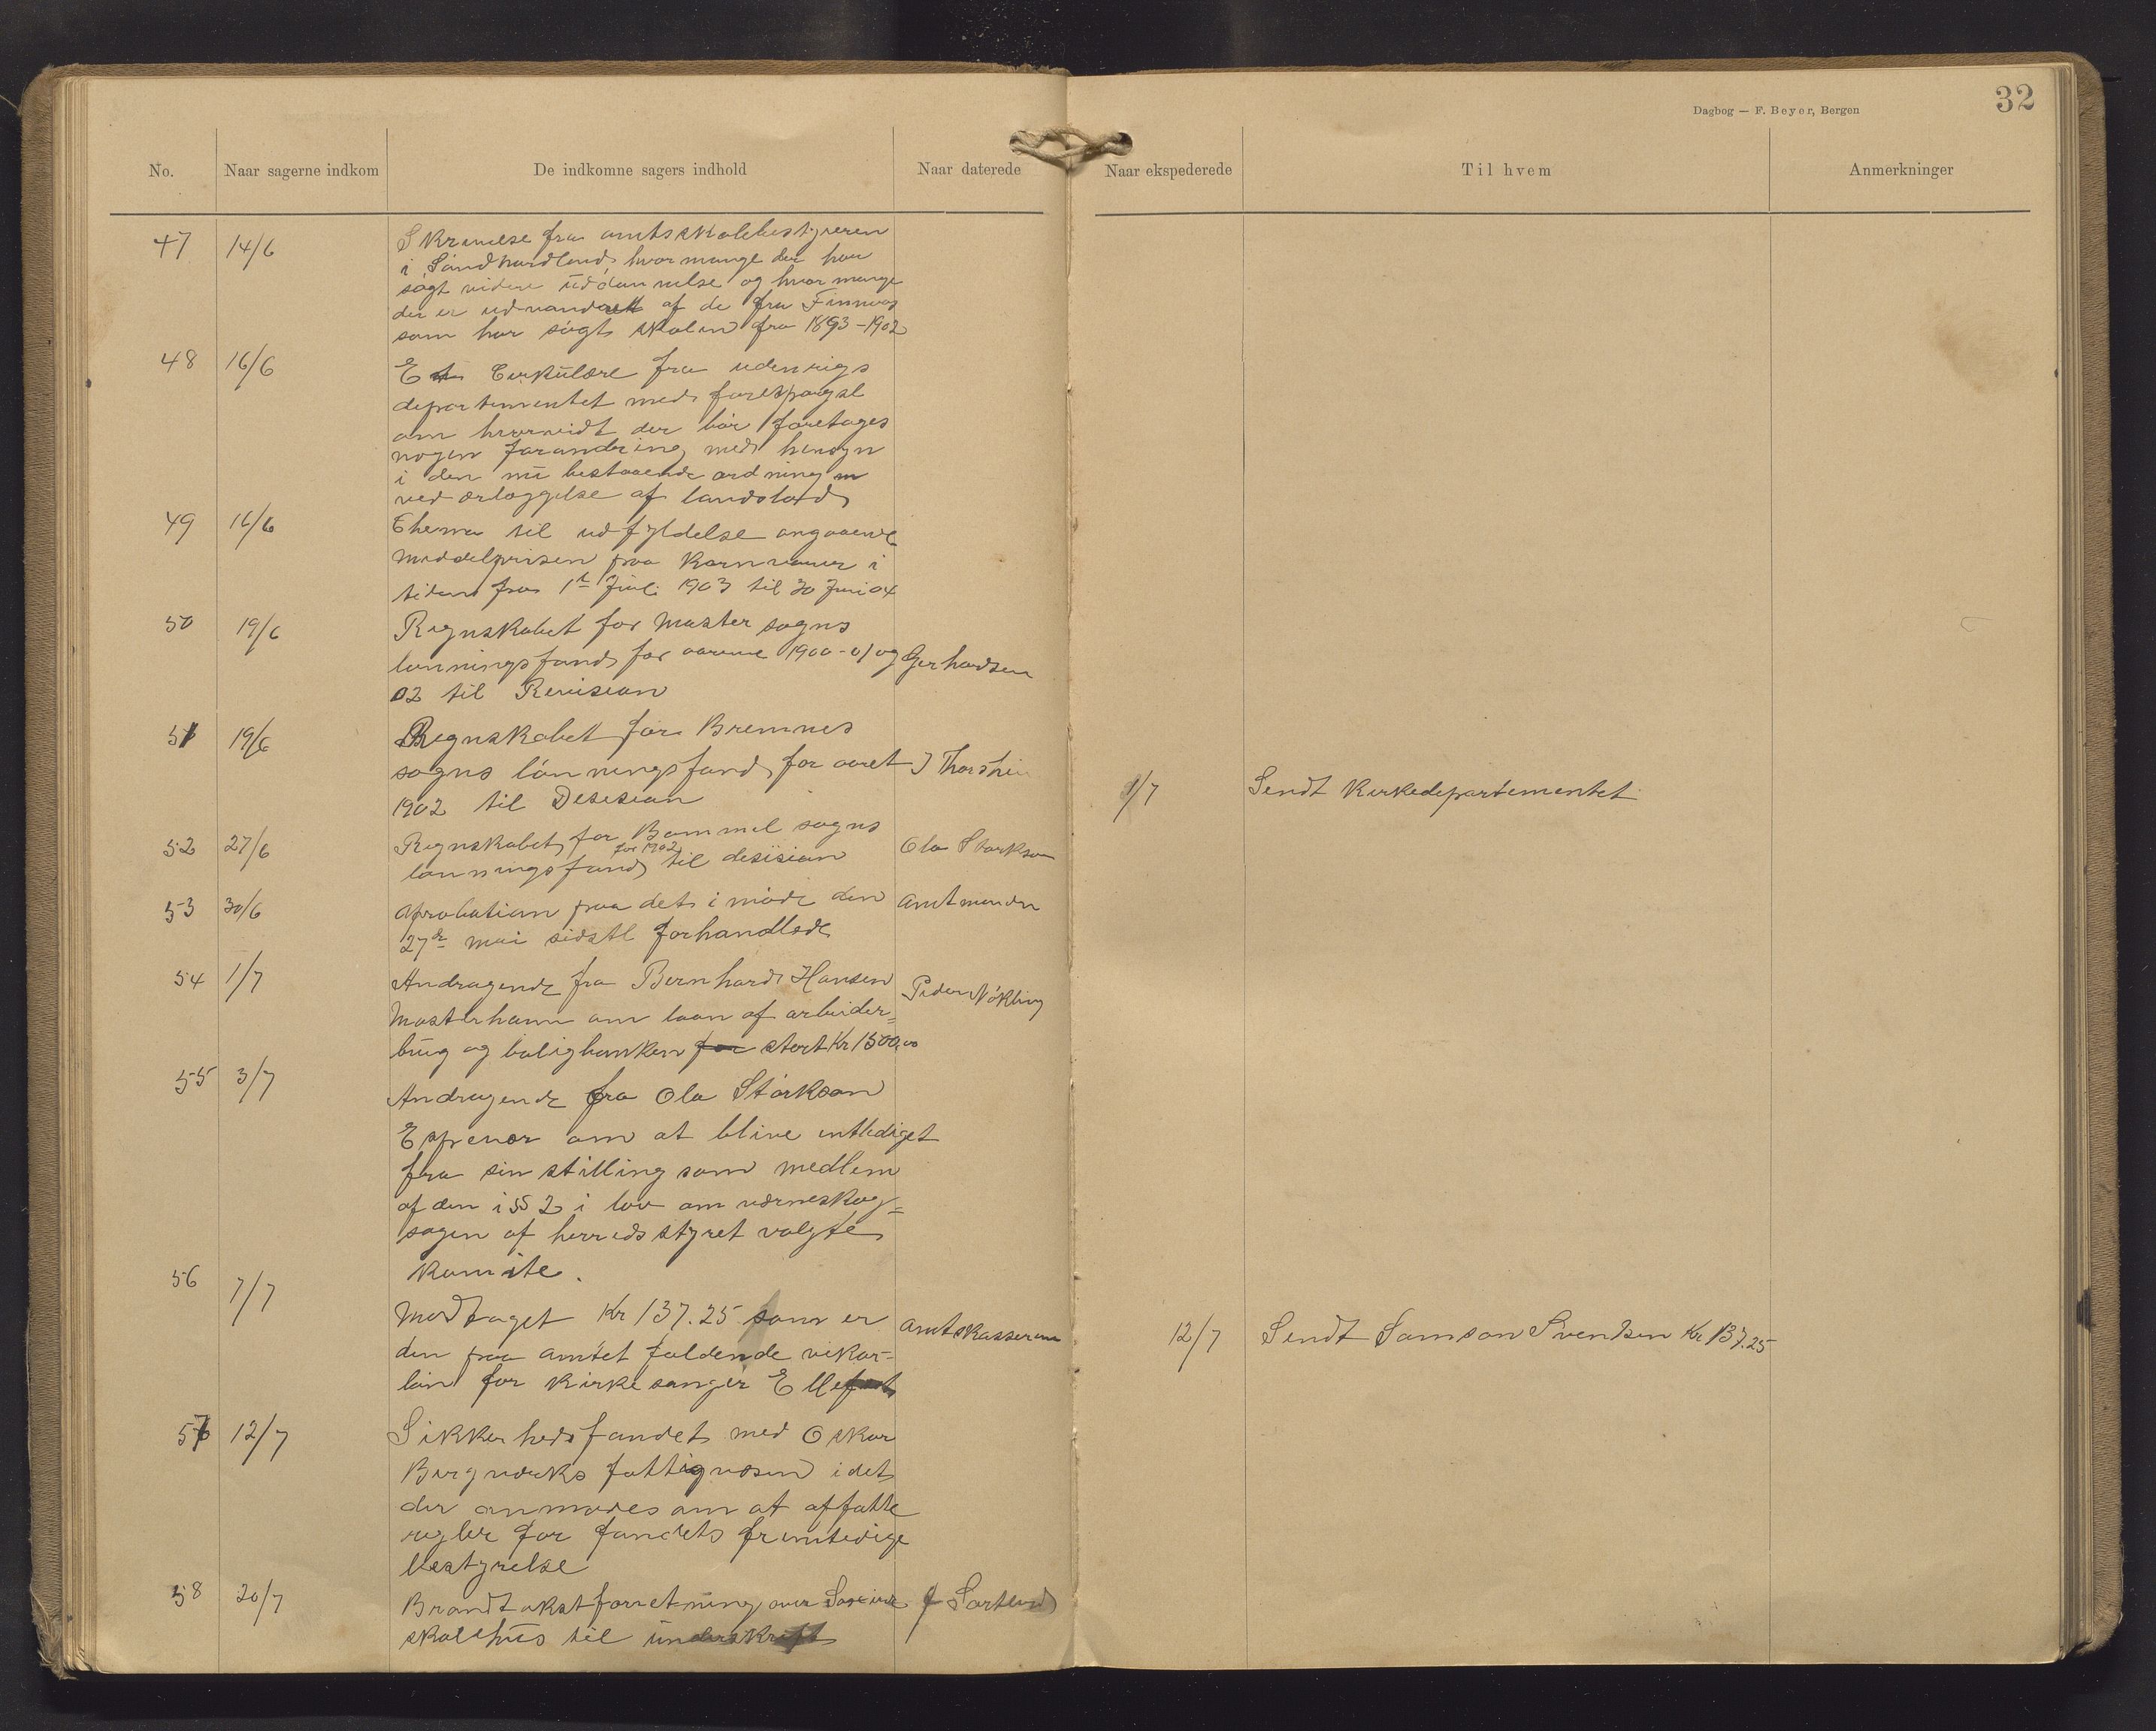 Dagbog — F. Beyer, Bergen
32
No.
Naar sagerne indkom
De indkomne sagers indhold
Naar daterede
Naar ekspederede
Til hvem
Anmerkninger
47 14/6 Skrivelse fra amtsskolebestyreren
i Söndhordland, hvor mange der har
sögt videre uddannelse og hvor mange
der er udvandret af de fra Finnaas
som har sögt skolen fra 1893-1902
48 16/6 Et Cirkulære fra udenrigs
departementet med forespörgsl
om hvorvidt der bör foretages
nogen forandring med hensyn
i den nu bestaaende ordning
ved ærlæggelse af landslod
49 16/6 Chema til udfyldelse angaaende
middelprisen paa kornvarer i
tiden fra 1ste Juli 1903 til 30 Juni 04
50 19/6 Regnskabet for Moster sogns
lönningsfond for aarene 1900-01 og Gerhardsen
02 til Revision
51 19/6 Regnskabet for Bremnes
sogns lönningsfond for aaret J Thorstein
1902 til Desision
1/7 Sendt Kirkedepartementet
52 27/6 Regnskabet for Bømmel sogns Ola Størkson
lönningsfond for 1902 til desision
53 30/6 Aprobation paa det i möde den Amtmanden
27de mai sidstl forhandlede
54 1/7 Andragende fra Bernhard Hansen Peder Nökling
Mosterhavn om laan af arbeider=
brug og boligbanken for stort Kr 1500,00
55 3/7 Andragende fra Ola Störkson
Espevær om at blive entlediget
fra sin stilling som medlem
af den i § 2 i lov om værneskog=
sagen af herredsstyret valgte
komite.
56 7/7 Modtaget Kr 137.25 som er Amtskasseren
den paa amtet faldende vikar-
lön for kirkesanger Ellef
12/7 Sendt Samson Svendsen Kr 137.25
57 12/7 Sikkerhedsfondet med Oskar
Bergværks fattigvæsen idet
der anmodes om at affatte
regler for fondets fremtidige
bestyrelse
58 20/7 Brandtakstforretning over J Sortland
skolehus til underskrift